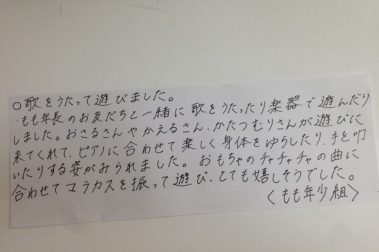 ○歌をうたって遊びました。
もも年長のお友だちと一緒に歌をうたったり楽器で遊んだり
しました。おさるさんやかえるさん、かたつむりさんが遊びに
来てくれて、ピアノに合わせて楽しく身体をゆらしたり、手を叩
いたりする姿がみられました。おもちゃのチャチャチャの曲に
合わせてマラカスを振って遊び、とても嬉しそうでした。
〈もも年少組〉